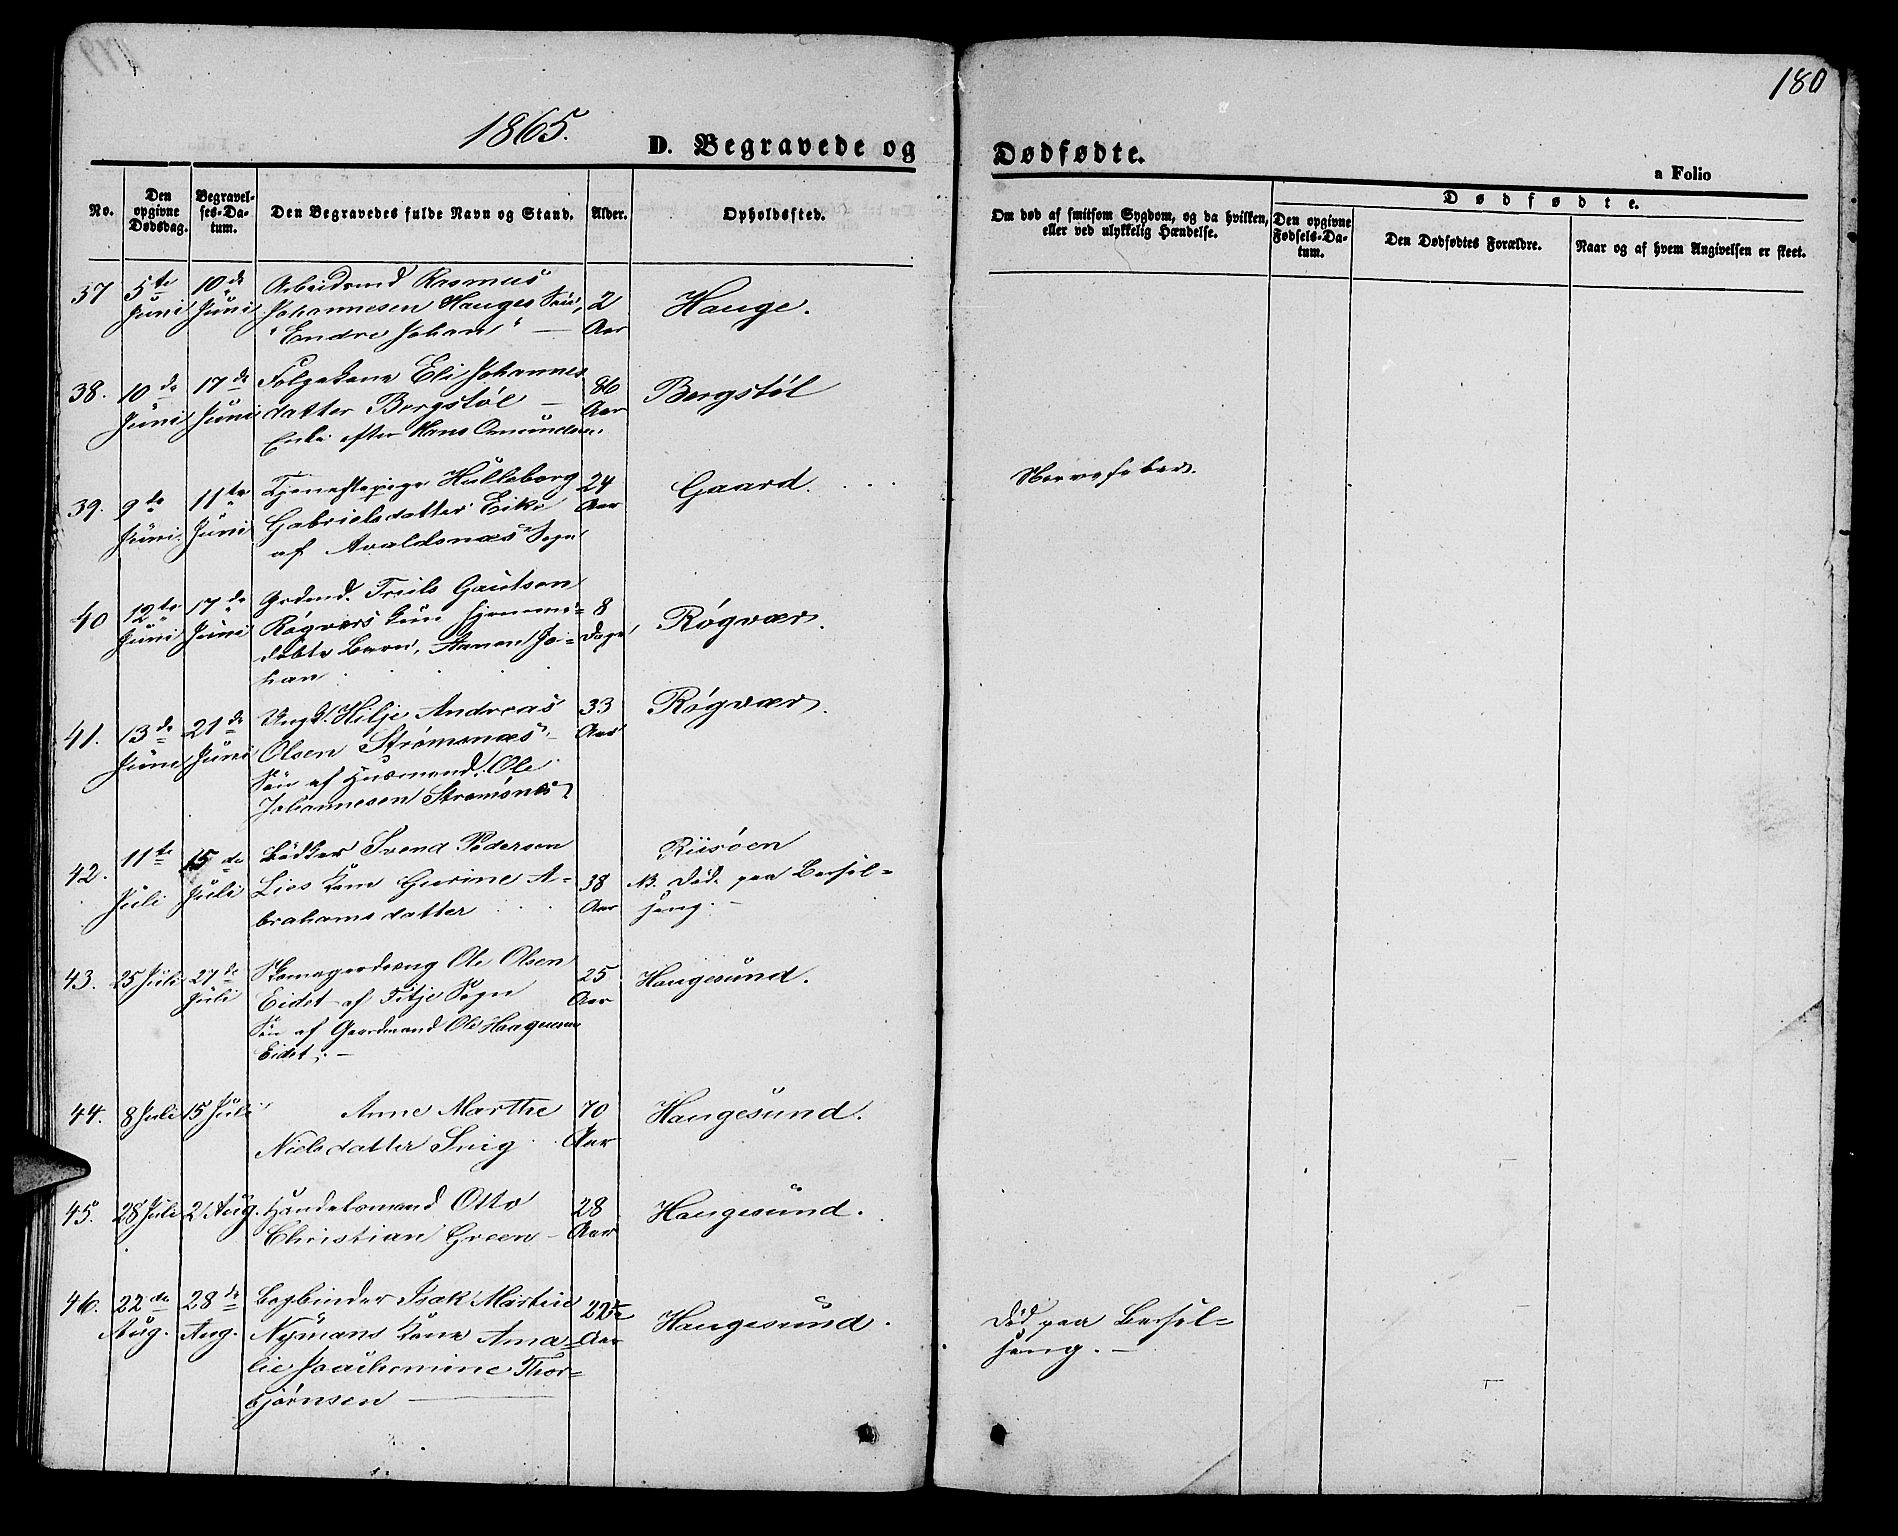 180
1865.
D. Begravede og Dødfødte.
a Folio
No.
Den opgivne Dødsdag.
Begravelses-Datum.
Den Begravedes fulde Navn og Stand.
Alder.
Opholdssted.
Om død af smitsom Sygdom, og da hvilken, eller ved ulykkelig Hændelse.
Dødfødte.
Den opgivne Fødsels-Datum.
Den Dødfødtes Forældre.
Naar og af hvem Angivelsen er skeet.
37 5te Juni 10de Juni Arbeidsmd Rasmus
Johannesen Hauges Søn,
"Endre Johan" —
2 Aar
Hauge.
38. 10de Juni 17de Juni Folgekone Eli Johannes
datter Bergstøl —
Enke efter Hans Omundsen.
86 Aar
Bergstøl
39. 9de Juni. 11te Juni Tjenestepige Hulleborg
Gabrielsdatter Eike
af Avaldsnæs Sogn
24 Aar
Gaard.
Nervefeber.
40 12te Juni 17de Juni Grdmd. Truls Gautsen
Røgværs kun hjemme-
døbte Barn, Aamon Jo-
han
8 Dage
Røgvær.
41. 13de Juni 21de Juni Ungk. Hilje Andreas
Olsen Strømsnæs
Søn af Husmand Ole
Johannesen Strømsnæs
33 Aar
Røgvær.
42. 11te Juli 15de Juli Bødker Svend Pedersen
Lies Kone Gurine A-
brahamsdatter
38 Aar
Riisøen
NB. Død paa Barsel-
seng. —
43. 25 Juli 27de Juli Skomagerdreng Ole Olsen
Eidet af Fitje Sogn
Søn af Gaardmand Ole Haagensen
Eidet. —
25 Aar
Haugesund.
44. 8 Juli 15 Juli Anne Marthe
Nielsdatter Snig
70 Aar
Haugesund.
45. 28 Juli 2 Aug. Handelsmand Otto
Christian Green
28 Aar
Haugesund.
46. 22de Aug. 28de Aug. Bogbinder Isak Martin
Nymans Kone Ama-
lie Joachomine Thor-
bjørnsen —
22 Aar
Haugesund.
Død paa Barsel-
seng. —